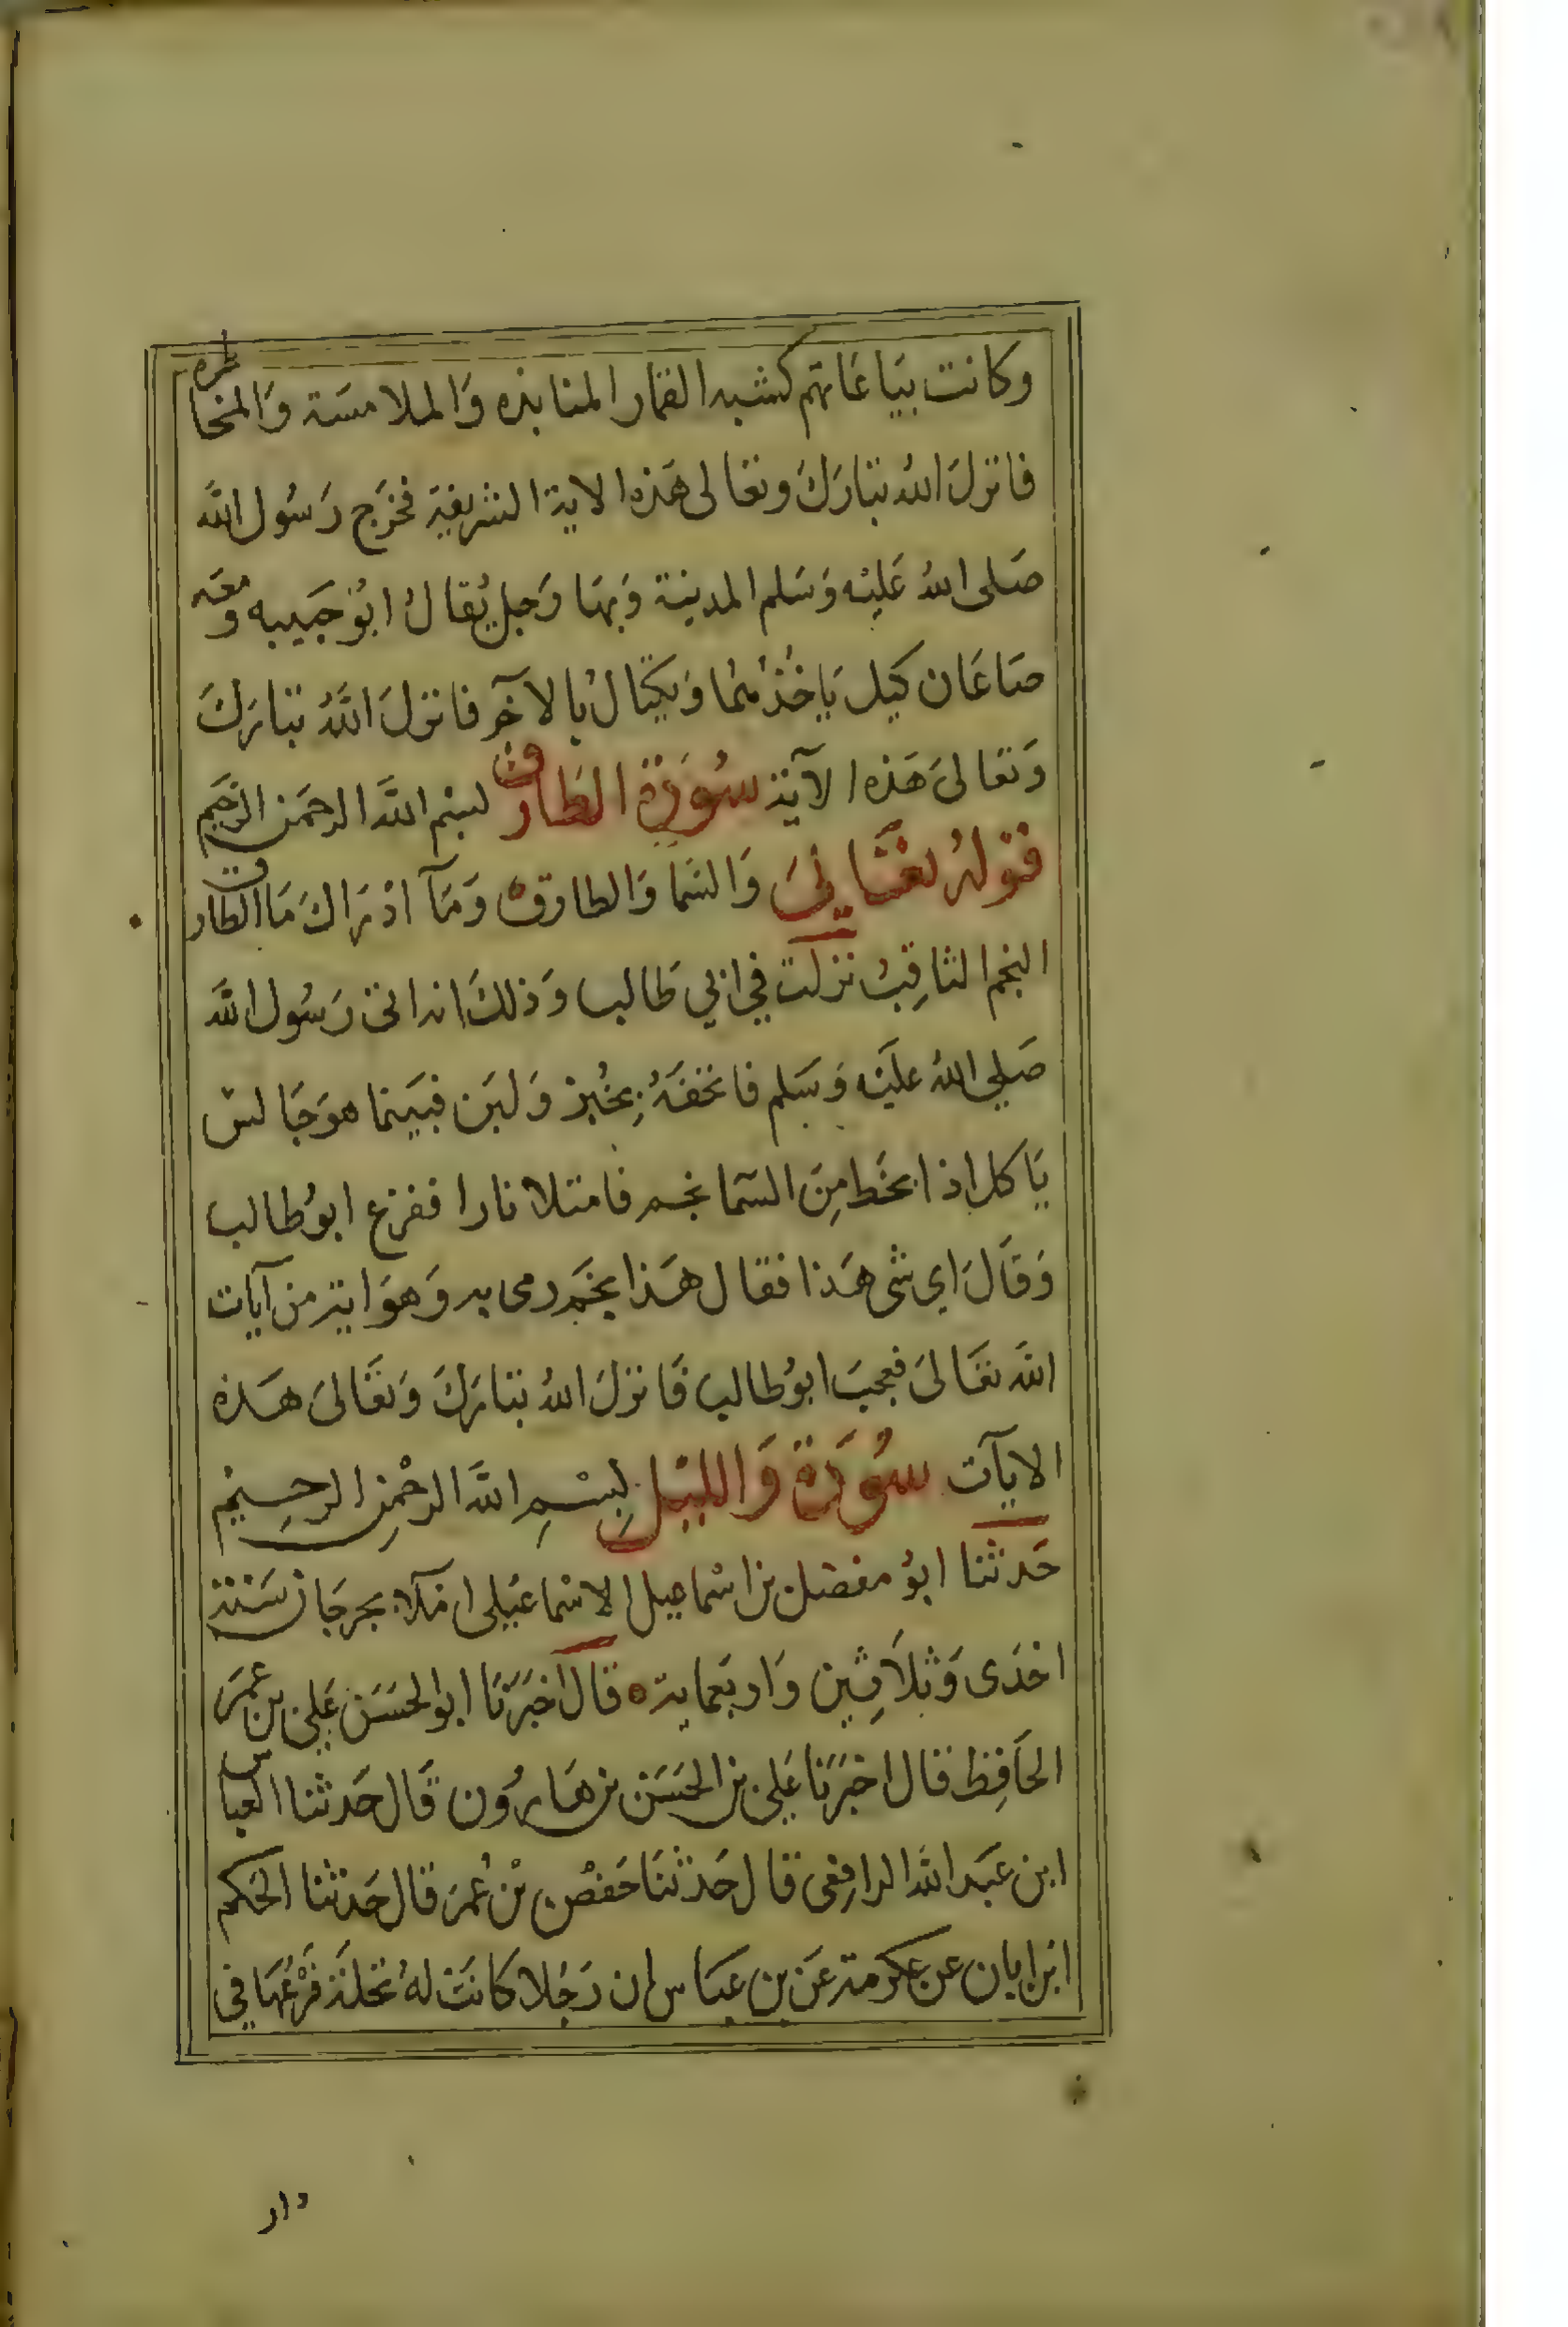 وكانت بيَاعَاتهم كشبه القمار المنابذه وَالملامسَة وَالمخاطره
فانزلَ اللهُ تبَارَكَ وتعَالى هَذه الاية الشريفة فخرَج رَسُول اللَّه
صَلى اللهُ عَليْه وَسَلم المدينة وَبهَا رَجل يُقالُ ابُو جَهيبه ومعَه
صَاعَان كيل يَاخُذ بهُما وَيكتالُ بالآخر فانزلَ اللَّهُ تبَارَكَ
وَتعَالىَ هَذه الآية سُورَة الطارق لبسْم اللَّه الرحمَن الرَّحيم
قوْلهُ تعَالىَ وَالسَما وَالطارق وَمَآ ادْرَاكَ مَا الطارق
النجم الثاقِبُ نزلت في ابي طَالب وَذلكَ انه اتى رَسُول اللَّه
صَلي اللهُ عليَه وَسَلم فاتحفَهُ بِخُبز وَلبَن فبَينما هوَ جَالس
يَاكل اذ انحَط مِنَ السَّما نجم فامتلا نارا ففزع ابوُ طالب
وَقَالَ اي شى هَذا فقال هَذا نجَم رمى به وَهوَ اية من آيات
اللَّه تعَالىَ فعجبَ ابوُ طالب فَانزلَ اللهُ تبَارَكَ وَتعَالىَ هَذه
الايآت سُورَة وَالليْل لِبسْمِ اللَّه الرحْمنِ الرحِيْم
حَدثنا ابوُ مفضل بن اسْماعيل الاسْماعيْلى املآ بجرجَان سَنَة
احْدَى وَثلاَثِين وَاربَعماية قال اخبَرَنَا ابو الحسَن عَلى بن عمَر
الحَافِظ قال اخبَرَنَا عَلى بن الحسَن بن هَارُون قَال حَدثنا العباس
ابن عَبَد اللَّه الرافِقى قال حَدثنَا حَفصْ بْن عُمرَ قَال حَدثنا الحكم
ابْن ابان عن عكرمة عَن بن عبَاس ان رَجُلا كانَتْ لهُ نخلَة فَرْعُهَا في
دار